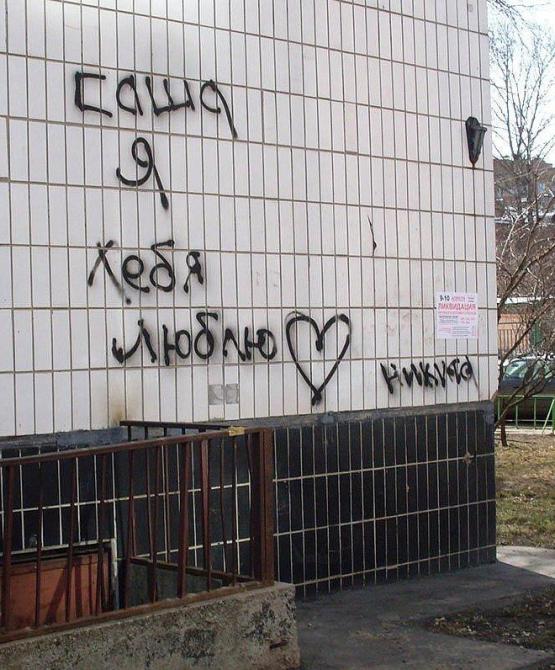 Саша
Я
тебя
люблю
Никита
9-10 АПРЕЛЯ
ЛИКВИДАЦИЯ